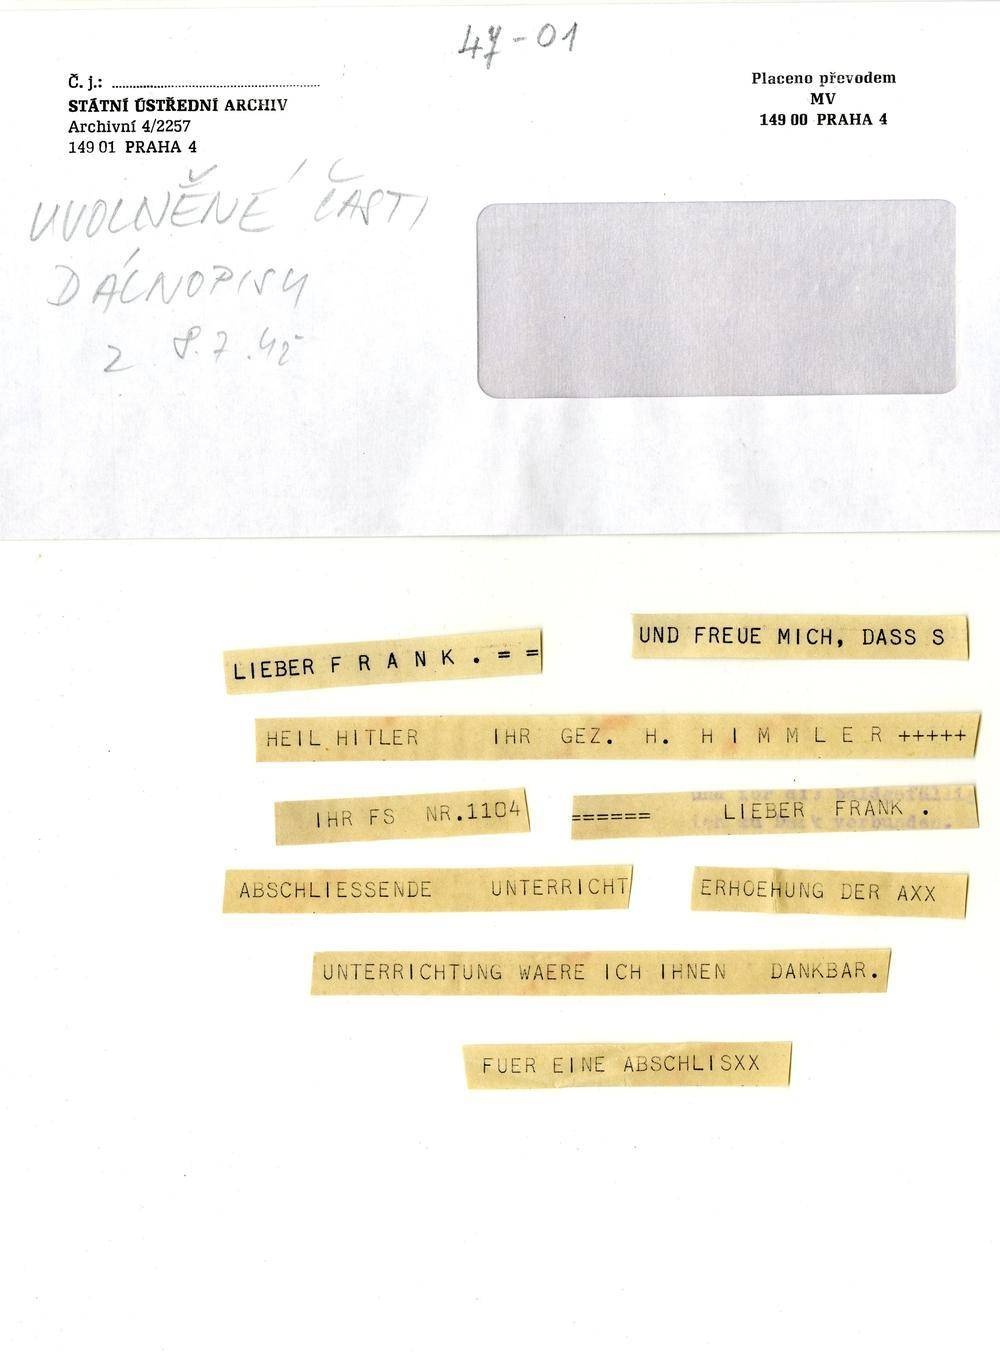 47-01
Č. j.: ........................................................
STÁTNÍ ÚSTŘEDNÍ ARCHIV
Archivní 4/2257
149 01 PRAHA 4
Placeno převodem
MV
149 00 PRAHA 4
UVOLNĚNÉ ČÁSTI
DÁLNOPISU
z 8.7.42
LIEBER F R A N K . = =
UND FREUE MICH, DASS S
HEIL HITLER IHR GEZ. H. H I M M L E R +++++
IHR FS NR.1104
====== LIEBER FRANK .
ABSCHLIESSENDE UNTERRICHT
ERHOEHUNG DER AXX
UNTERRICHTUNG WAERE ICH IHNEN DANKBAR.
FUER EINE ABSCHLISXX